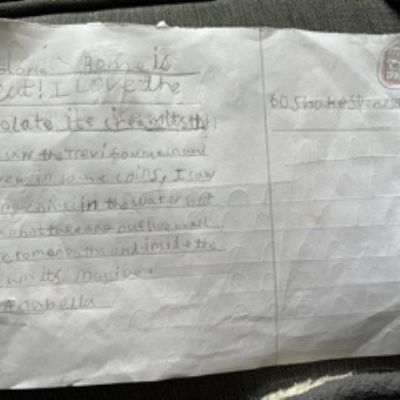 Gloria Rome is
eat! I Love the
olate ice cream its the
saw the Trevi fountain and
rew in some coins, I saw
in the water but
not take
e roman baths and inside the
um its massive.
Anabella
60 Shakespeare